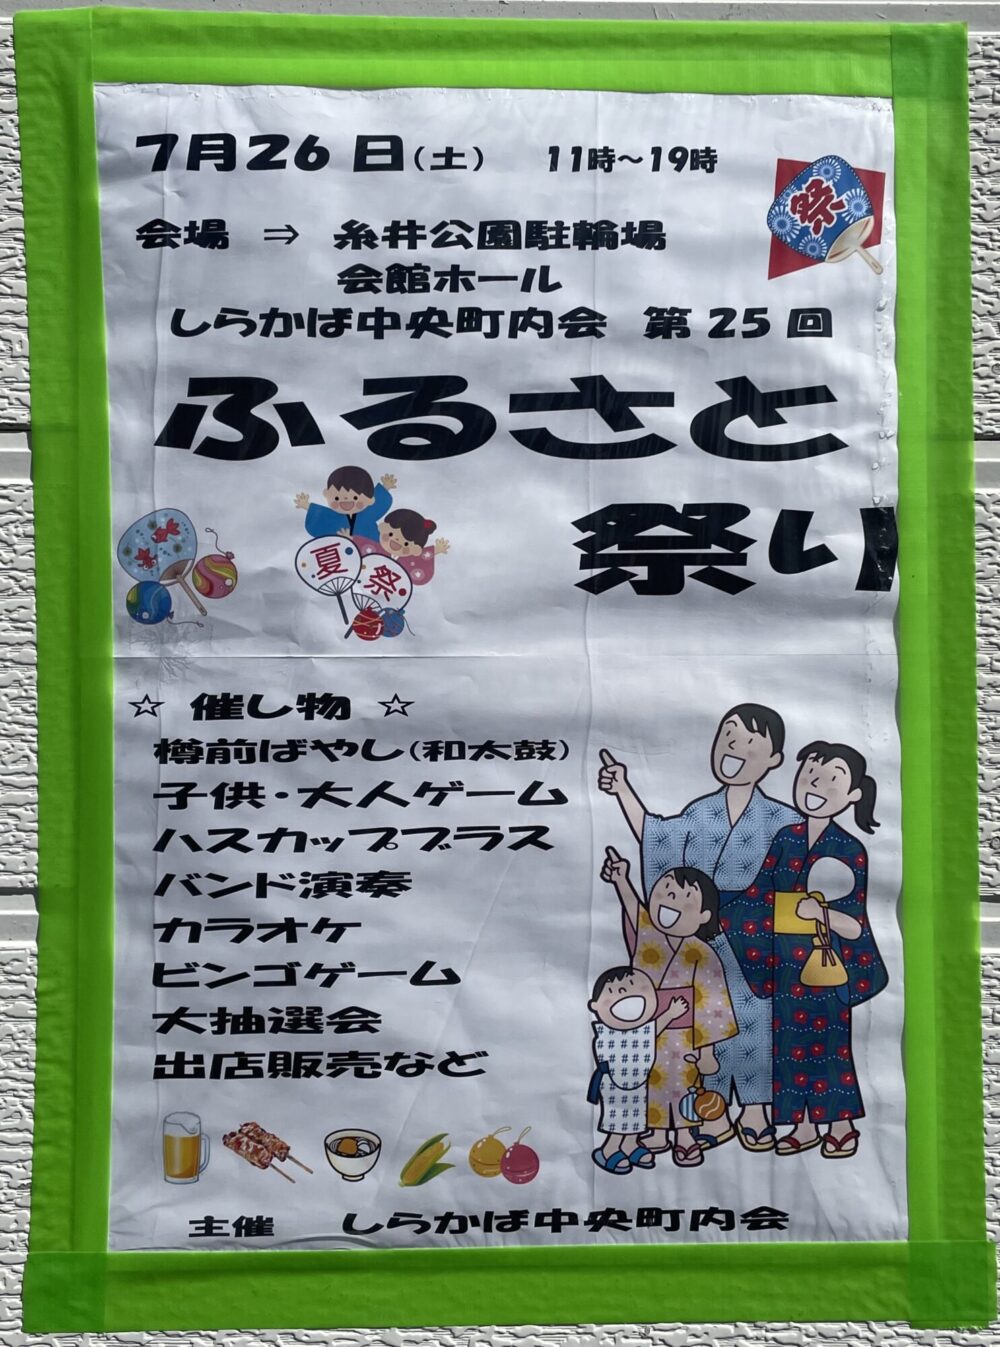 7月26日（土） 11時～19時
祭
会場 ⇒ 糸井公園駐輪場
会館ホール
しらかば中央町内会 第25回
ふるさと
祭り
夏
祭
☆ 催し物 ☆
樽前ばやし（和太鼓）
子供・大人ゲーム
ハスカップブラス
バンド演奏
カラオケ
ビンゴゲーム
大抽選会
出店販売など
主催 しらかば中央町内会